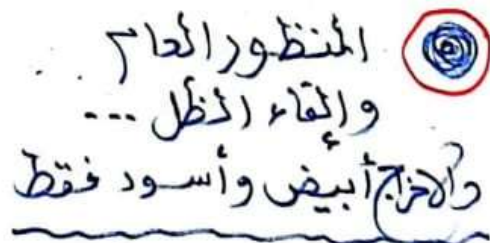 المنظور العام
وإلقاء الظل ...
والاخراج أبيض وأسود فقط